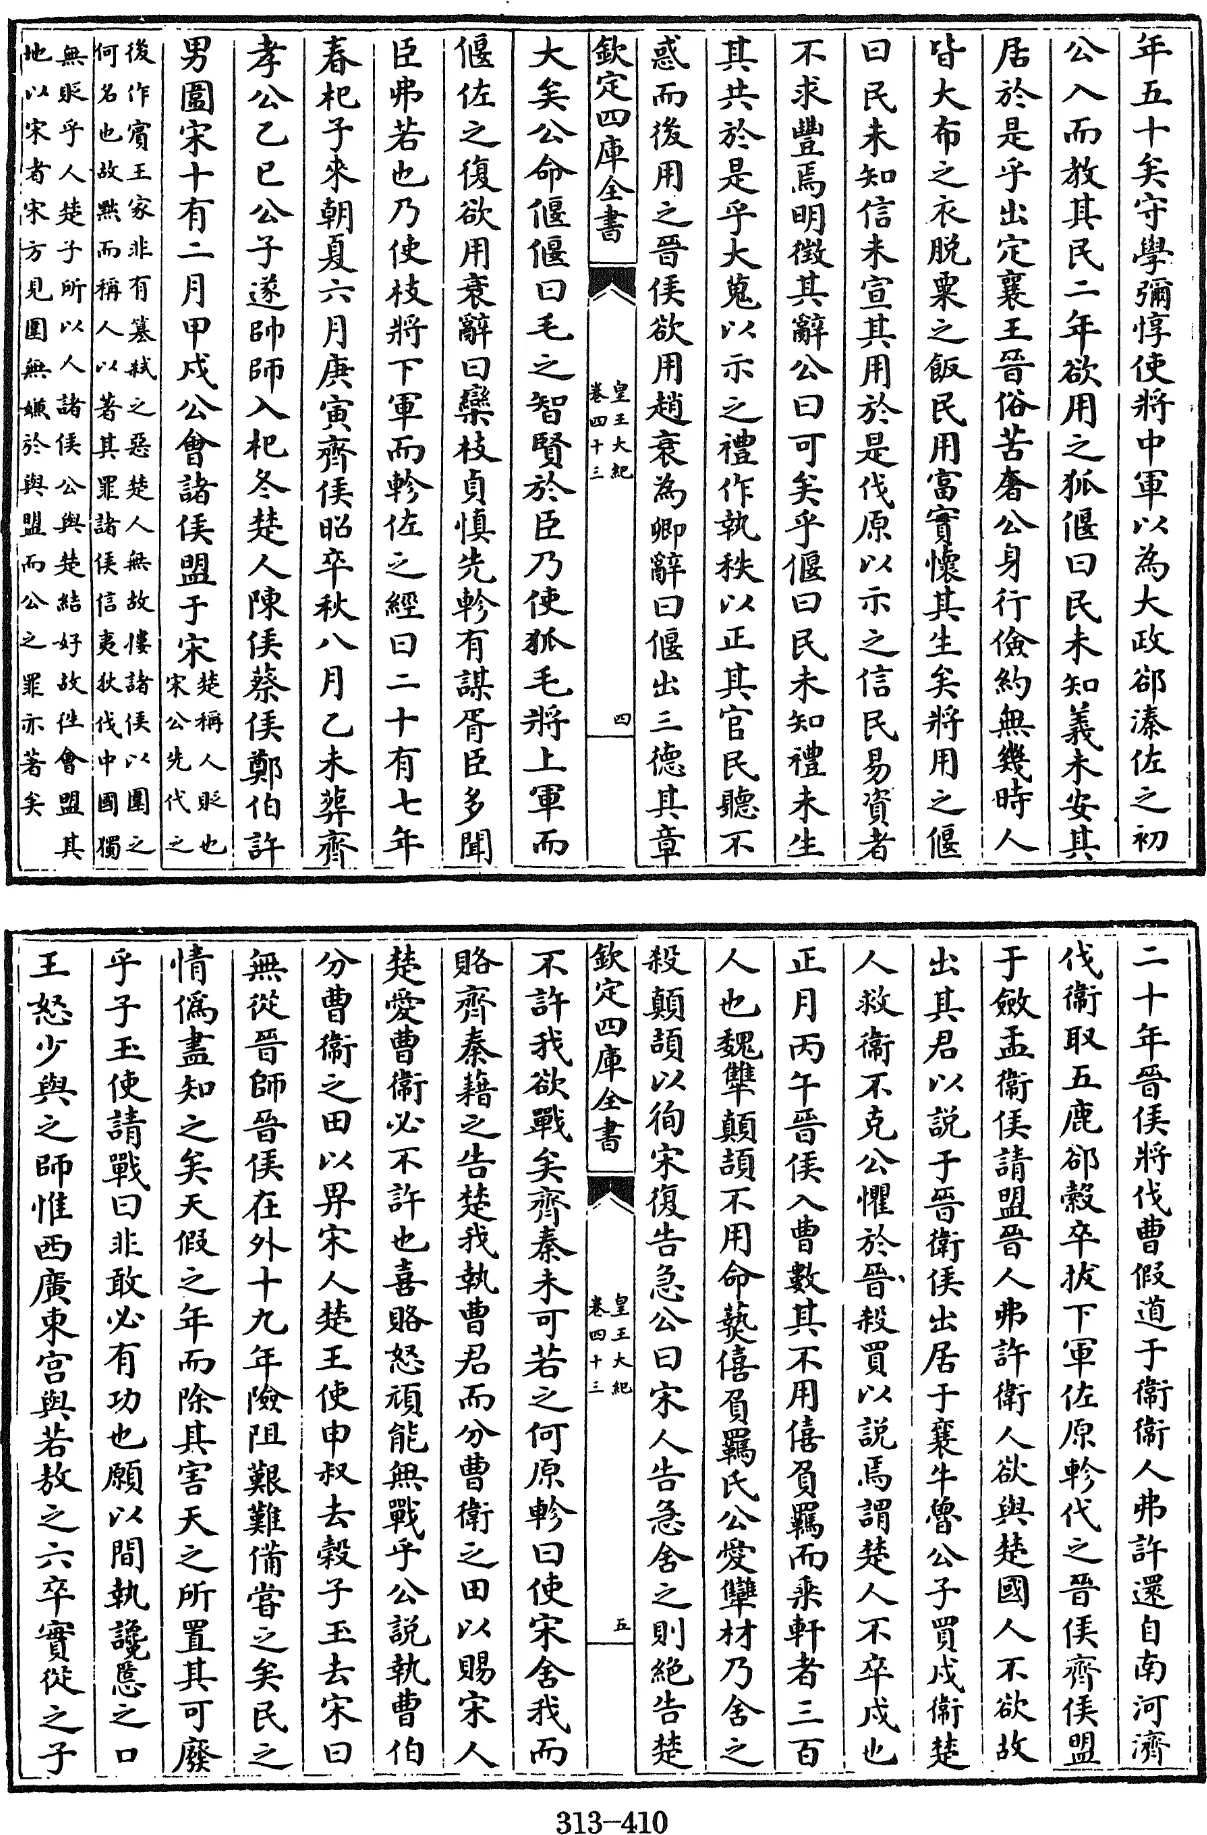 年五十矣守學彌惇使將中軍以為大政郤溱佐之初
公入而教其民二年欲用之狐偃曰民未知義未安其
居於是乎出定襄王晉俗苦奢公身行儉約無幾時人
皆大布之衣脱粟之飯民用富實懷其生矣將用之偃
曰民未知信未宣其用於是伐原以示之信民易資者
不求豐焉明徵其辭公曰可矣乎偃曰民未知禮未生
其共於是乎大蒐以示之禮作執秩以正其官民聽不
惑而後用之晉侯欲用趙衰為卿辭曰偃出三德其章
欽定四庫全書
皇王大紀
卷四十三
四
大矣公命偃偃曰毛之智賢於臣乃使狐毛將上軍而
偃佐之復欲用衰辭曰欒枝貞慎先軫有謀胥臣多聞
臣弗若也乃使枝將下軍而軫佐之經曰二十有七年
春杞子來朝夏六月庚寅齊侯昭卒秋八月乙未葬齊
孝公乙巳公子遂帥師入杞冬楚人陳侯蔡侯鄭伯許
男圍宋十有二月甲戌公會諸侯盟于宋
楚稱人貶也
宋公先代之
後作賓王家非有簒弑之惡楚人無故摟諸侯以圍之
何名也故黜而稱人以著其罪諸侯信夷狄伐中國獨
無貶乎人楚子所以人諸侯公與楚結好故徃會盟其
地以宋者宋方見圍無嫌於與盟而公之罪亦著矣
二十年晉侯將伐曹假道于衞衞人弗許還自南河濟
伐衞取五鹿郤縠卒拔下軍佐原軫代之晉侯齊侯盟
于斂盂衞侯請盟晉人弗許衛人欲與楚國人不欲故
出其君以説于晉衛侯出居于襄牛魯公子買戍衞楚
人救衞不克公懼於晉殺買以説焉謂楚人不卒戍也
正月丙午晉侯入曹數其不用僖負羈而乘軒者三百
人也魏犨顛頡不用命爇僖負羈氏公愛犨材乃舍之
殺顛頡以徇宋復告急公曰宋人告急舍之則絶告楚
欽定四庫全書
皇王大紀
卷四十三
五
不許我欲戰矣齊秦未可若之何原軫曰使宋舍我而
賂齊秦藉之告楚我執曹君而分曹衛之田以賜宋人
楚愛曹衞必不許也喜賂怒頑能無戰乎公説執曹伯
分曹衞之田以畀宋人楚王使申叔去穀子玉去宋曰
無從晉師晉侯在外十九年險阻艱難備嘗之矣民之
情僞盡知之矣天假之年而除其害天之所置其可廢
乎子玉使請戰曰非敢必有功也願以間執讒慝之口
王怒少與之師惟西廣東宫與若敖之六卒實從之子
313-410